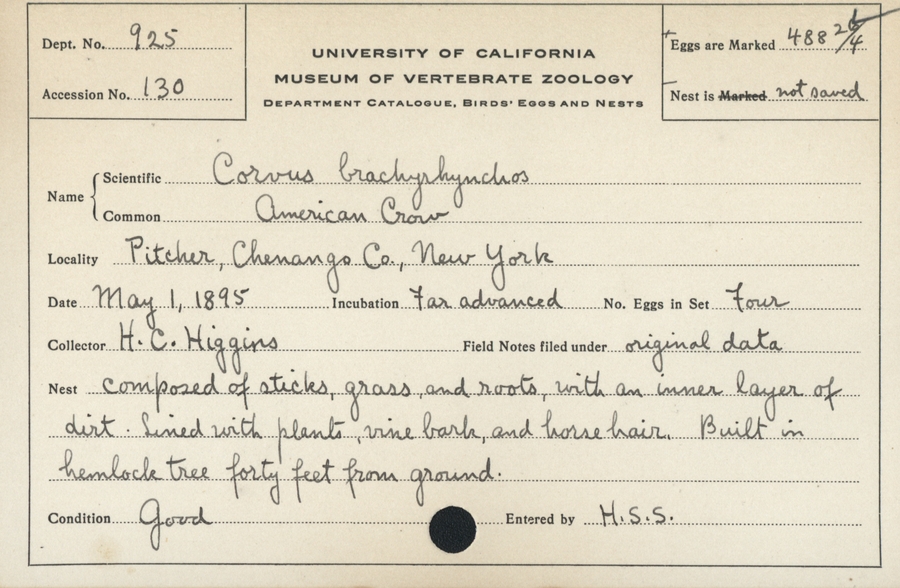 Dept. No. 925
Accession No. 130
UNIVERSITY OF CALIFORNIA
MUSEUM OF VERTEBRATE ZOOLOGY
DEPARTMENT CATALOGUE, BIRDS' EGGS AND NESTS
Eggs are Marked 488 26/4
Nest is Marked not saved
Name
Scientific Corvus brachyrhynchos
Common American Crow
Locality Pitcher, Chenango Co., New York
Date May 1, 1895 Incubation Far advanced No. Eggs in Set Four
Collector H. C. Higgins Field Notes filed under original data
Nest composed of sticks, grass, and roots, with an inner layer of
dirt. Lined with plants, vine bark, and horse hair. Built in
hemlock tree forty feet from ground.
Condition Good Entered by H.S.S.